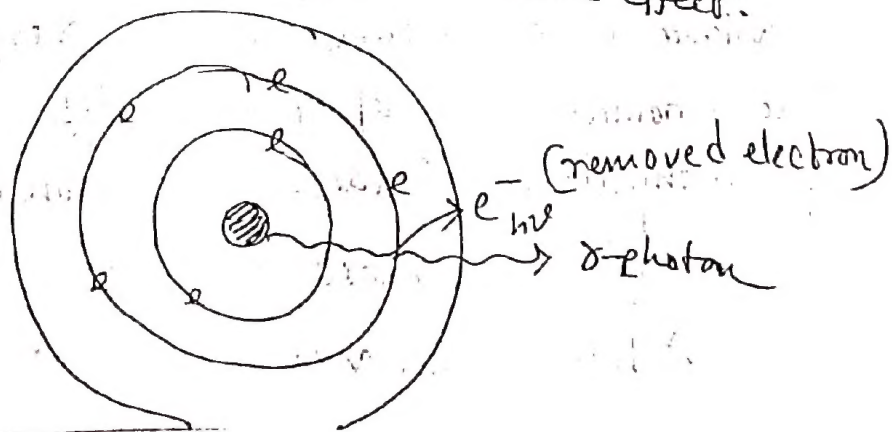 effect.
e
e
e
e
e
e
e⁻ (removed electron)
hν
γ-photon